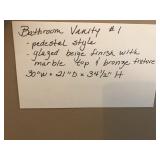 Bathroom Vanity #1
- pedestal style
- glazed beige finish with
marble top & bronze fixture
30"W x 21"D x 34½" H